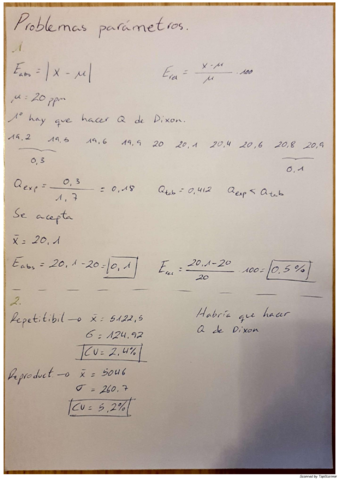 Problemas parámetros.
1
Eabs = |x - μ|    Erel = x - μ / μ · 100
μ = 20 ppm
1º hay que hacer Q de Dixon.
19,2 19,5 19,6 19,9 20 20,1 20,4 20,6 20,8 20,9
0,3    0,1
Qexp = 0,3 / 1,7 = 0,18    Qtab = 0,412    Qexp < Qtab
Se acepta
x̄ = 20,1
Eabs = 20,1 - 20 = 0,1    Erel = 20,1 - 20 / 20 · 100 = 0,5 %
2.
Repetitibil → x̄ = 5122,5    Habría que hacer
σ = 124,92    Q de Dixon
CV = 2,4%
Reproduct. → x̄ = 5046
σ = 260,7
CV = 5,2%
Scanned by TapScanner